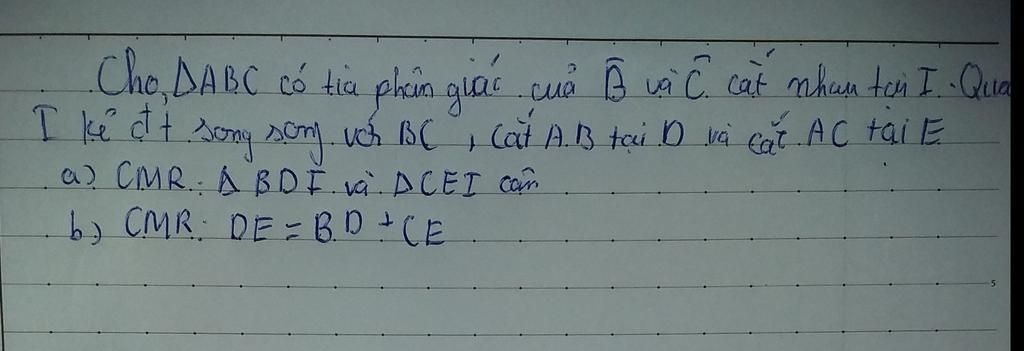 Cho ΔABC có tia phân giác của B̂ và Ĉ cắt nhau tại I. Qua
I kẻ đt song song với BC, cắt AB tại D và cắt AC tại E
a) CMR: Δ BDI và ΔCEI cân
b) CMR: DE = BD + CE
5